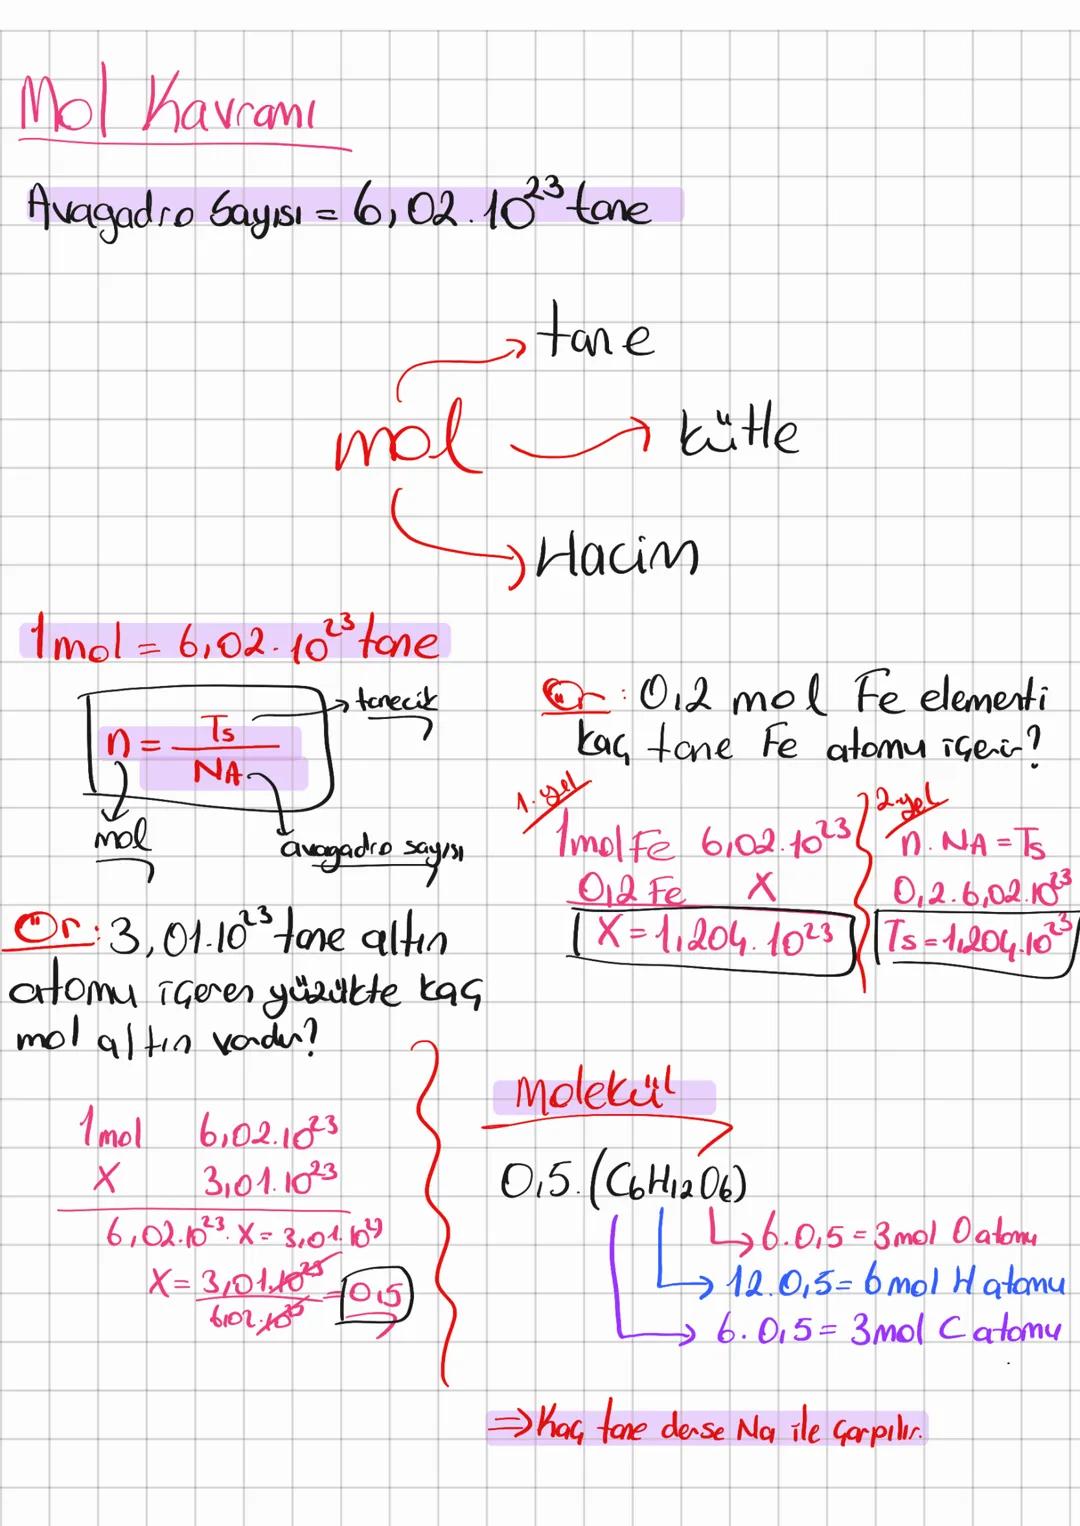 Mol Kavramı
Avagadro Sayısı = 6,02.10²³ tane
tane
mol
kütle
Hacim
1 mol = 6,02.10²³ tane
n = Ts / NA
tanecik
mol
avagadro sayısı
Ör: 0,2 mol Fe elementi
kaç tane Fe atomu içerir?
1. yol
1 mol Fe 6,02.10²³
0,2 Fe X
X = 1,204.10²³
2. yol
n. NA = Ts
0,2.6,02.10²³
Ts = 1,204.10²³
Ör: 3,01.10²³ tane altın
atomu içeren yüzükte kaç
mol altın vardır?
1 mol 6,02.10²³
X 3,01.10²³
6,02.10²³. X = 3,01.10²³
X = 3,01.10²³ / 6,02.10²³ = 0,5
Molekül
0,5.(C6H12O6)
6.0,5 = 3 mol O atomu
12.0,5 = 6 mol H atomu
6.0,5 = 3 mol C atomu
⇒ Kaç tane derse Na ile çarpılır.